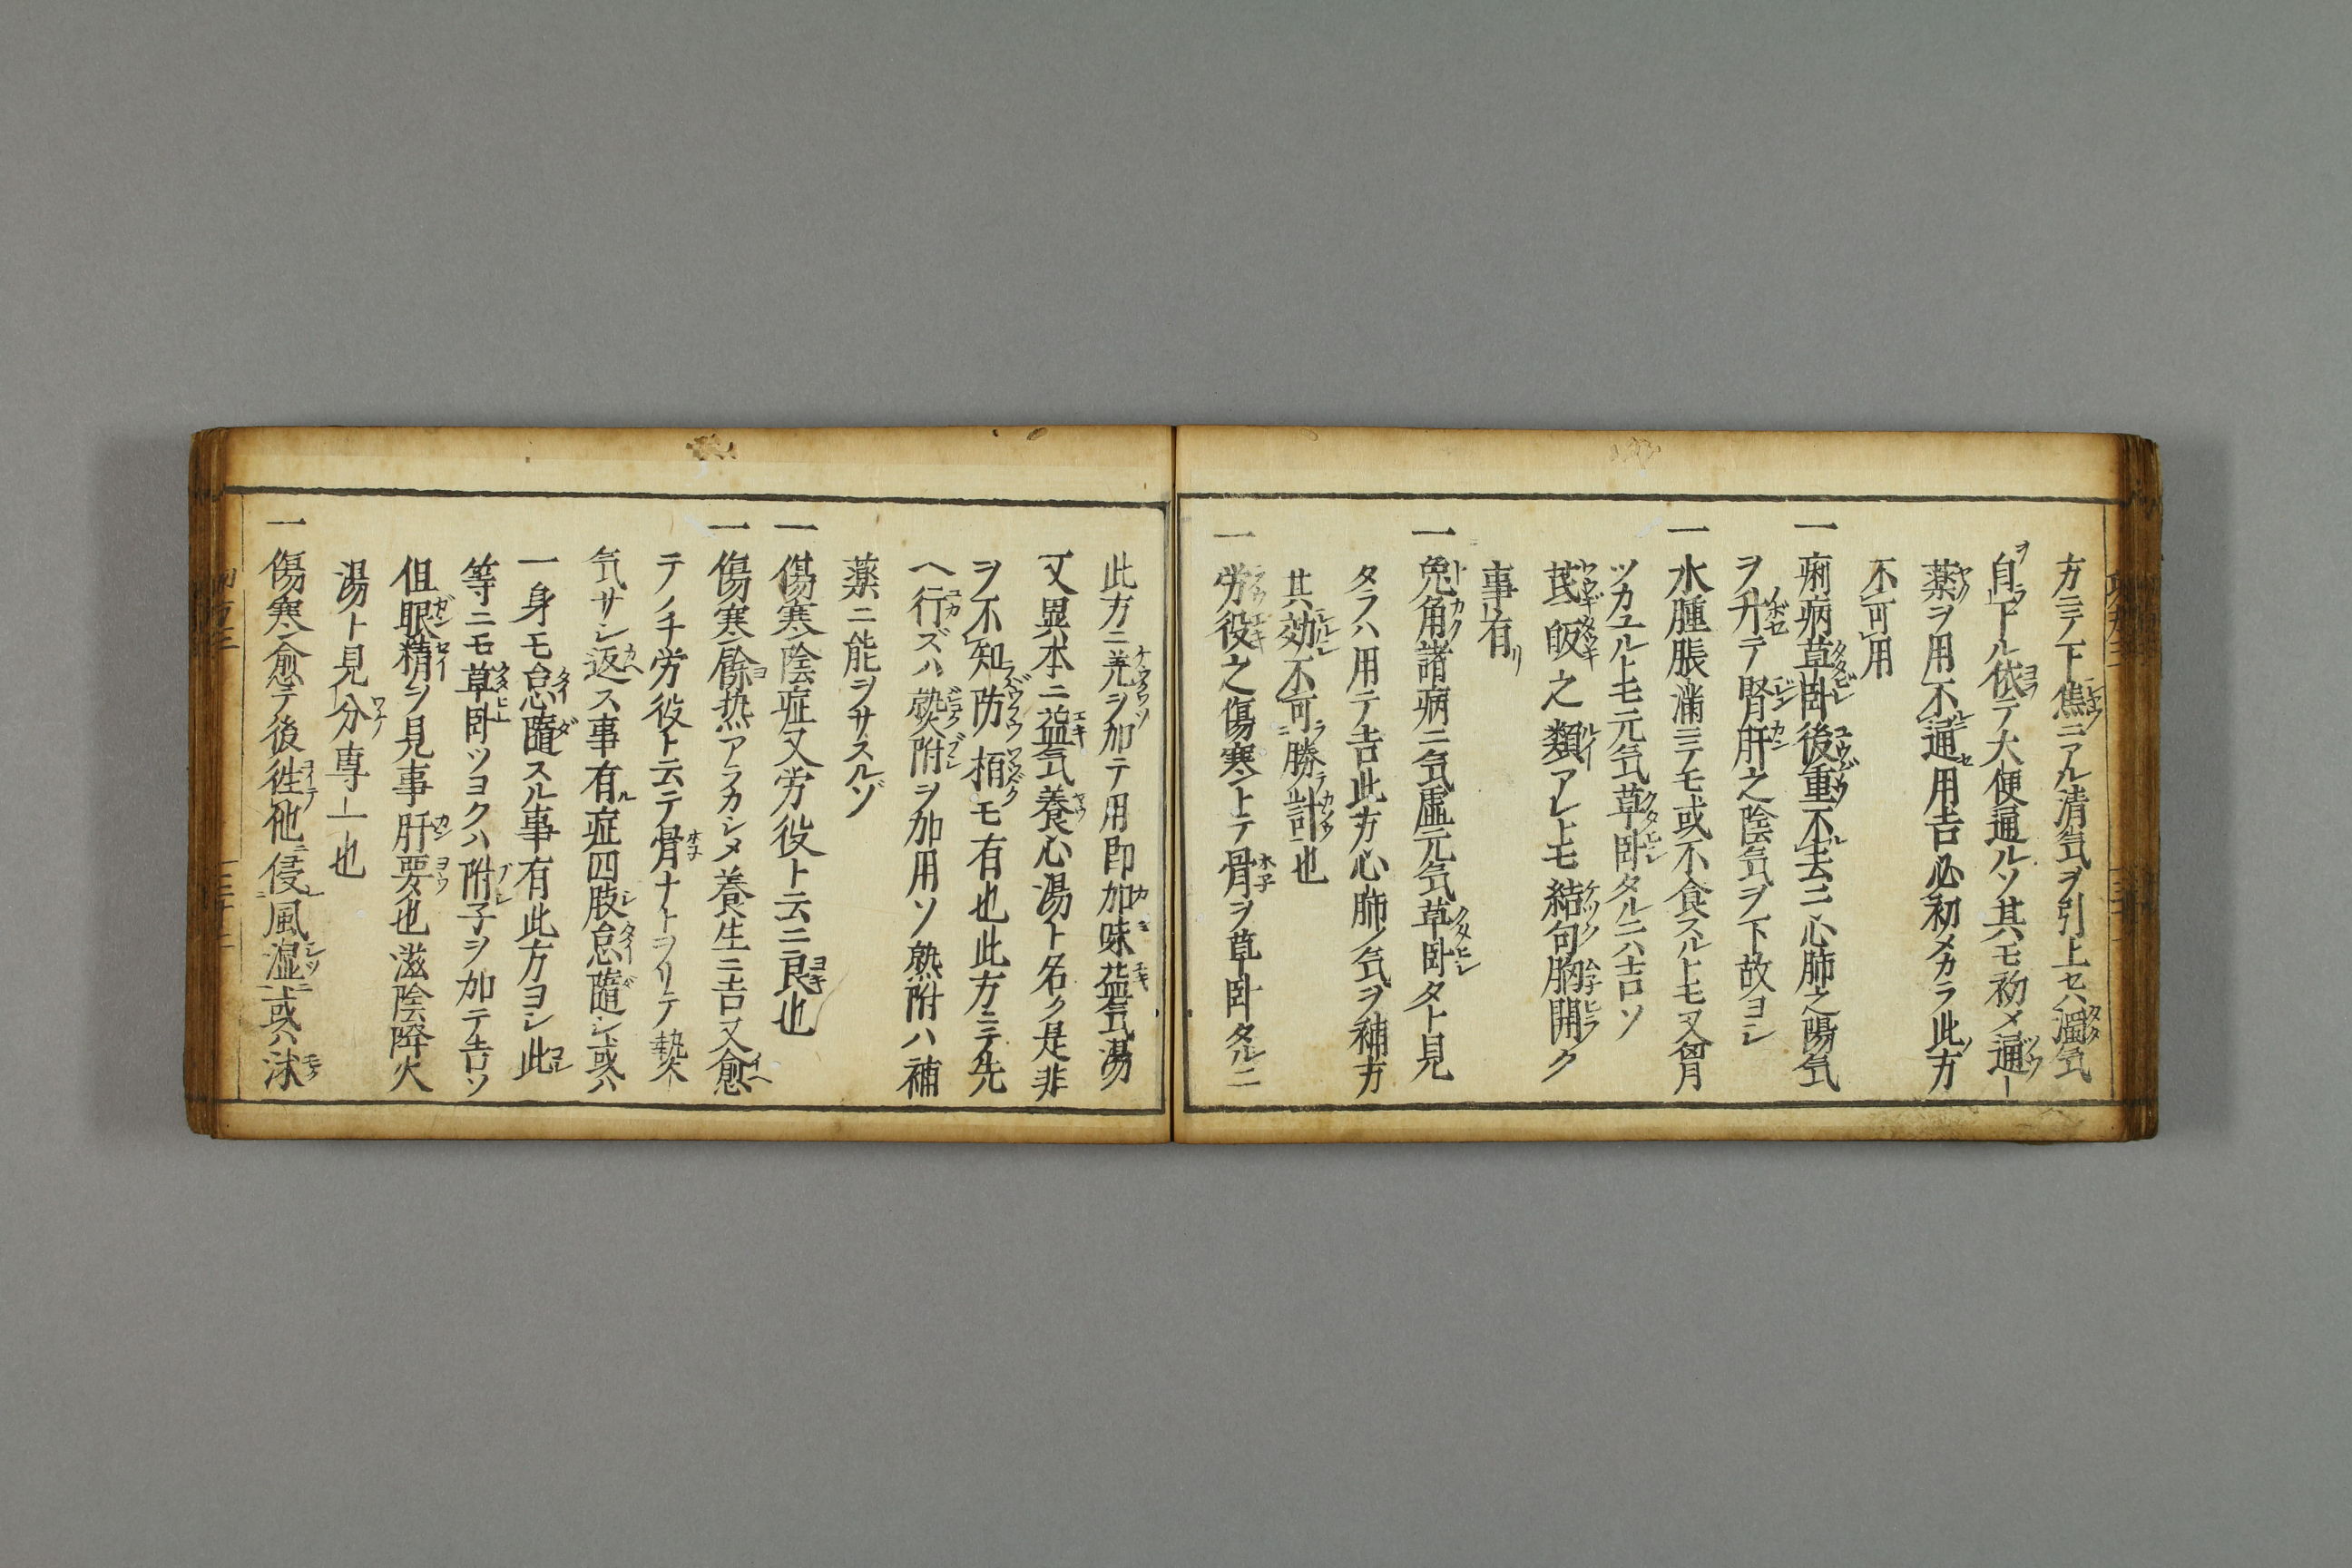 方ニテ下焦ニアル清気ヲ引上セハ濁気
自下ル依テ大便通ルソ其モ初メ通ー
薬ヲ用不通用吉必初メカラ此方
不可用
一痢病草臥後重不去ニ心肺之陽気
ヲ升テ腎肝之陰気ヲ下故ヨシ
一水腫脹満ニテモ或不食スルトモ又曽月
ツカユルトモ元気草臥タルニハ吉ロソ
芪皈之類アレトモ結句胸開ク
事有
一兎角諸病ニ気虚元気草臥タト見
タラハ用テ吉此方心肺ノ気ヲ補方
其効不可勝計也
一労役之傷寒トテ骨ヲ草臥タルニ
此方ニ羌ヲ加テ用即加味益気湯
又異本ニ益気養心湯ト名ク是非
ヲ不知防栢モ有也此方ニテ先
ヘ行ズハ附ヲ加用ソ熟附ハ補
薬ニ能ヲサスルゾ
一傷寒陰症又労役ト云ニ良也
一傷寒餘热アラカシメ養生ニ吉又愈
テノチ労役ト云テ骨ナトヲリテ熱
気サシ返ス事有症四肢怠隨シ或ハ
一身モ怠隨スル事有此方ヨシ此
等ニモ草臥ツヨクハ附子ヲ加テ吉ソ
但眼精ヲ見事肝要也滋陰降火
湯ト見分専一也
一傷寒愈テ後徃他侵風湿或ハ沐